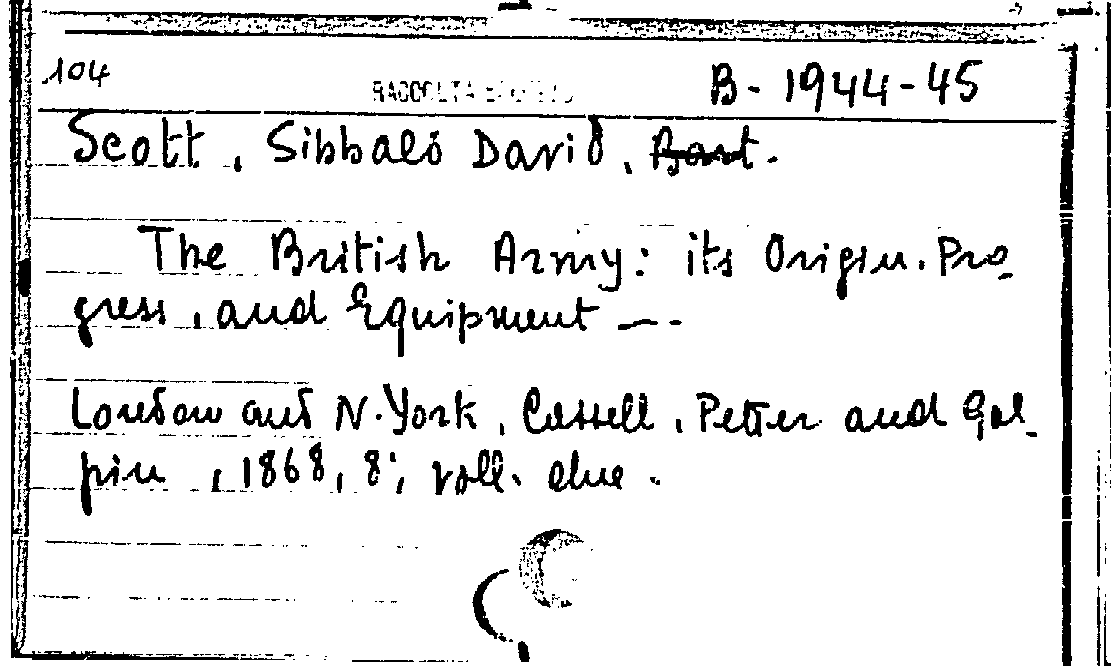 104 RACCOLTA B- 1944-45
Scott, Sibbald David, Bart.
The British Army: its Origin, Pro-
gress, and Equipment —-
London and N. York, Cassell, Petter and Gal-
pin, 1868, 8°, voll. due.